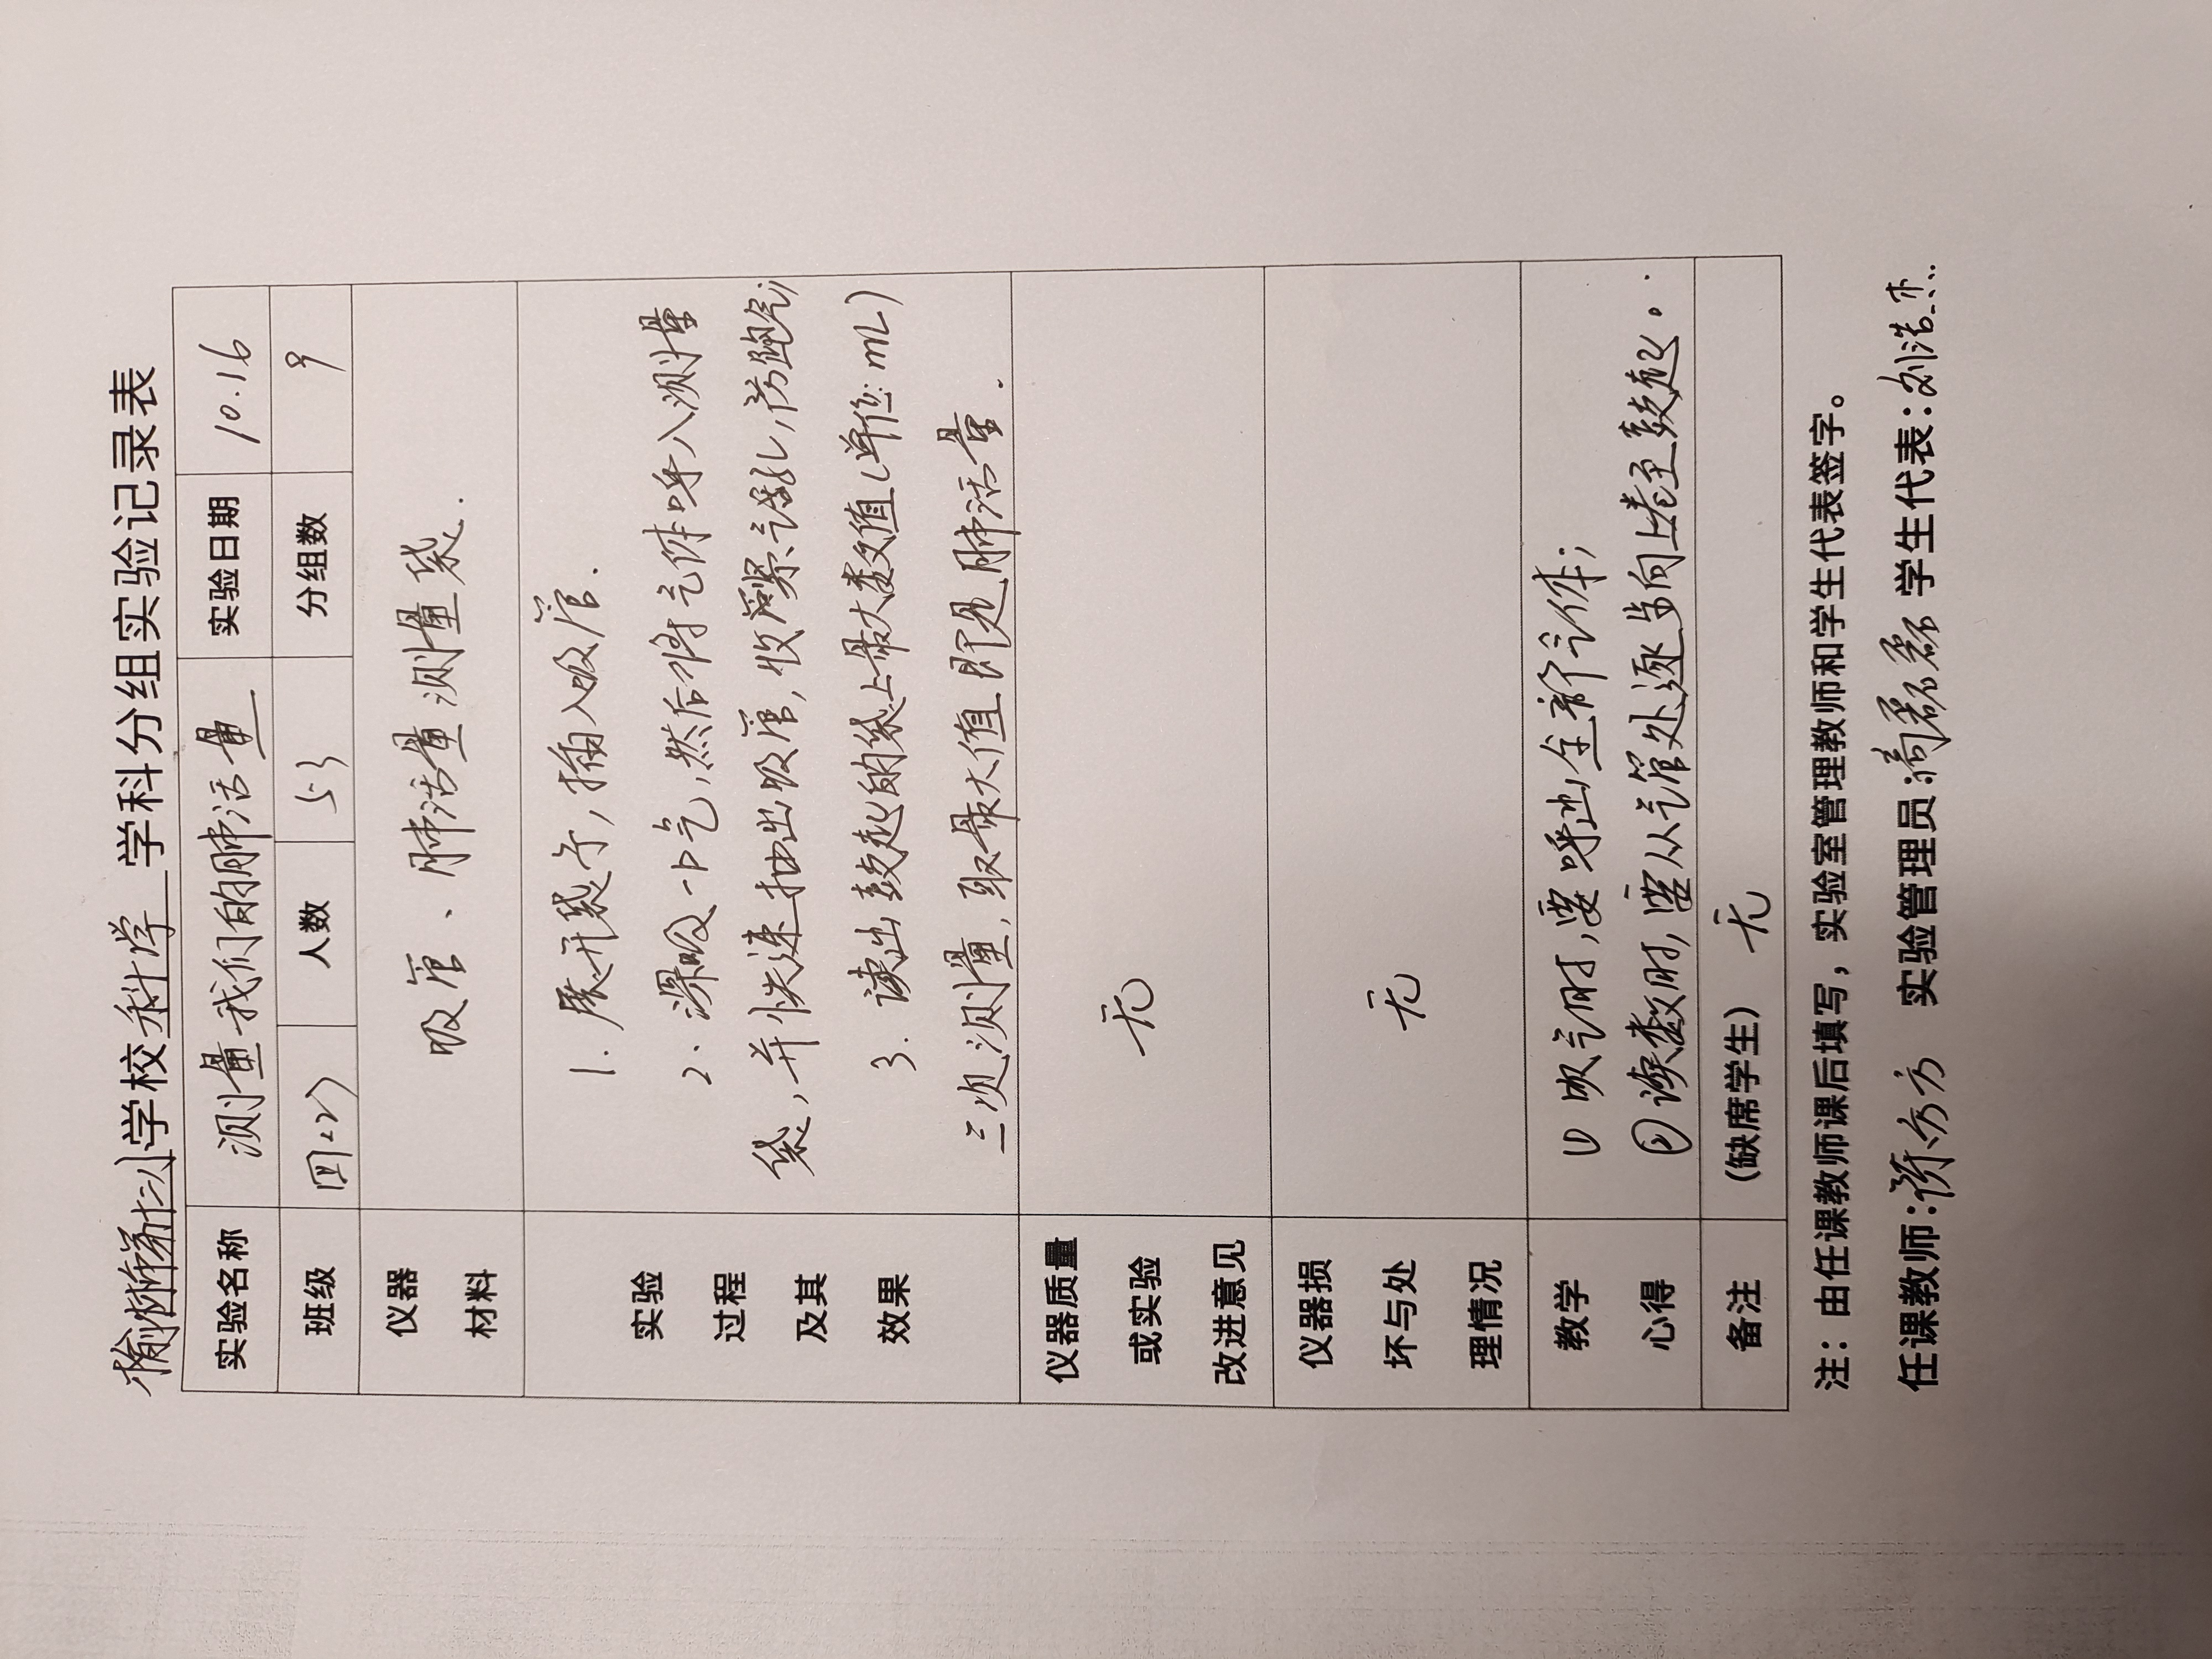 榆林第十二小学校 科学 学科分组实验记录表
实验名称 测量我们的肺活量 实验日期 10.16
班级 四(2) 人数 53 分组数 9
仪器材料 吸管、肺活量测量袋.
实验过程及其效果
1. 展开袋子,插入吸管.
2. 深吸一口气,然后将气体呼入测量
袋,并快速抽出吸管,收紧气孔,防跑气;
3. 读出鼓起的袋上最大数值(单位:mL)
三次测量,取最大值即是肺活量.
仪器质量或实验改进意见 无
仪器损坏与处理情况 无
教学心得
① 吹气时,要呼出全部气体;
② 读数时,需从气管处逐步向上卷至鼓起。
备注 (缺席学生) 无
注:由任课教师课后填写,实验室管理教师和学生代表签字。
任课教师: 实验管理员: 学生代表: